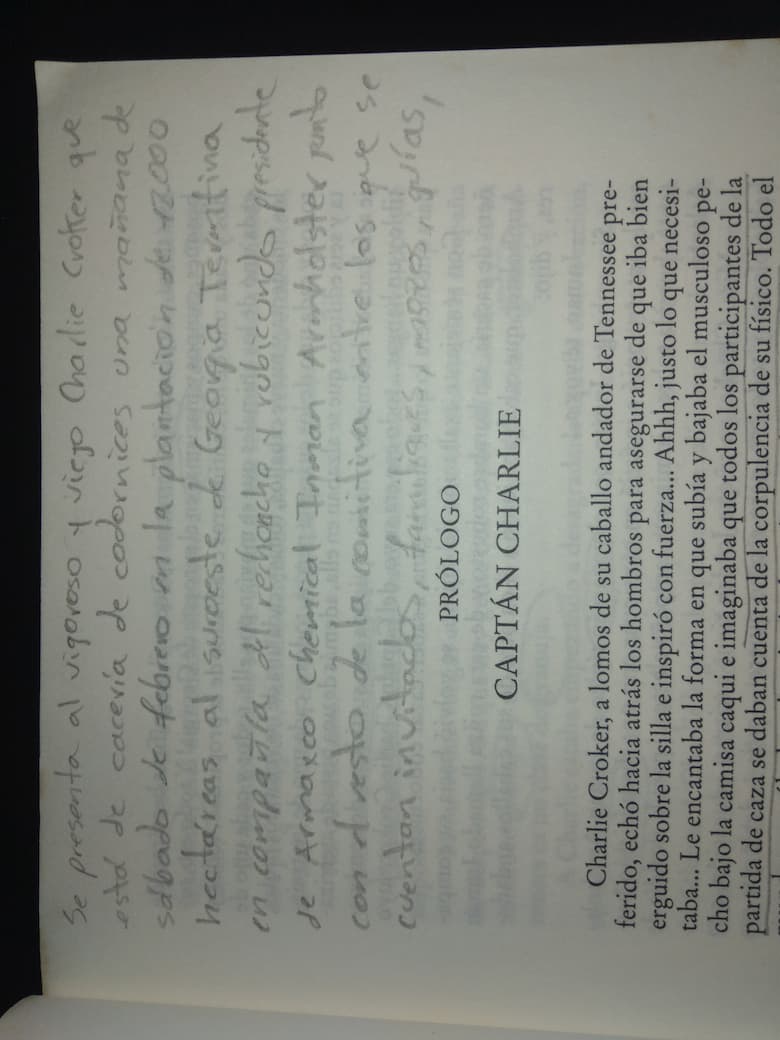 Se presenta al vigoroso y viejo Charlie Croker que
está de cacería de codornices una mañana de
sábado de febrero en la plantación de 12.000
hectáreas al suroeste de Georgia Termtina
en compañía del rechoncho y rubicundo presidente
de Armaxco Chemical Inman Armholster junto
con el resto de la comitiva entre los que se
cuentan invitados, familiares, mozos, guías,
PRÓLOGO
CAPTÁN CHARLIE
Charlie Croker, a lomos de su caballo andador de Tennessee pre-
ferido, echó hacia atrás los hombros para asegurarse de que iba bien
erguido sobre la silla e inspiró con fuerza... Ahhh, justo lo que necesi-
taba... Le encantaba la forma en que subía y bajaba el musculoso pe-
cho bajo la camisa caqui e imaginaba que todos los participantes de la
partida de caza se daban cuenta de la corpulencia de su físico. Todo el